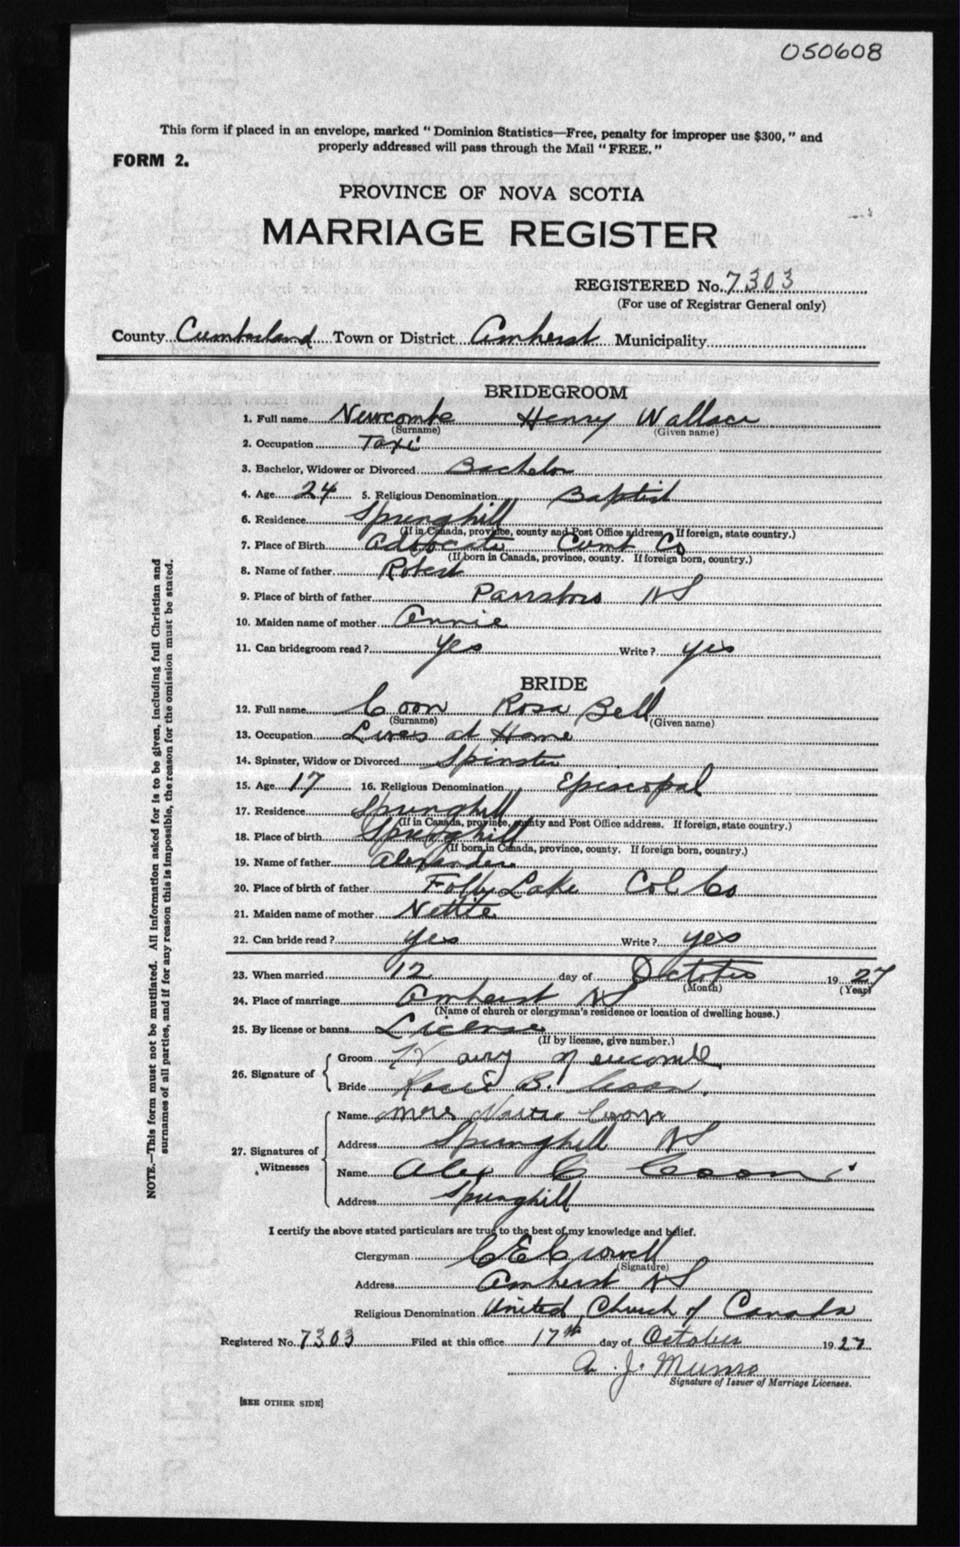 050608
This form if placed in an envelope, marked "Dominion Statistics—Free, penalty for improper use $300," and
properly addressed will pass through the Mail "FREE."
FORM 2.
PROVINCE OF NOVA SCOTIA
MARRIAGE REGISTER
REGISTERED No. 7303
(For use of Registrar General only)
County Cumberland Town or District Amherst Municipality
BRIDEGROOM
1. Full name Newcombe Henry Wallace
(Surname) (Given name)
2. Occupation Taxi
3. Bachelor, Widower or Divorced Bachelor
4. Age 24 5. Religious Denomination Baptist
6. Residence Springhill
(If in Canada, province, county and Post Office address. If foreign, state country.)
7. Place of Birth Advocate Cumb Co
(If born in Canada, province, county. If foreign born, country.)
8. Name of father Robert
9. Place of birth of father Parrsboro NS
10. Maiden name of mother Annie
11. Can bridegroom read? yes Write? yes
BRIDE
12. Full name Coon Rosa Bell
(Surname) (Given name)
13. Occupation Lives at Home
14. Spinster, Widow or Divorced Spinster
15. Age 17 16. Religious Denomination Episcopal
17. Residence Springhill
(If in Canada, province, county and Post Office address. If foreign, state country.)
18. Place of birth Springhill
(If born in Canada, province, county. If foreign born, country.)
19. Name of father Alexander
20. Place of birth of father Folly Lake Col Co
21. Maiden name of mother Nettie
22. Can bride read? yes Write? yes
23. When married 12 day of October 1927
(Month) (Year)
24. Place of marriage Amherst NS
(Name of church or clergyman's residence or location of dwelling house.)
25. By license or banns License
(If by license, give number.)
26. Signature of
Groom Henry Newcombe
Bride Rosie B. Coon
27. Signatures of Witnesses
Name Mrs Coon
Address Springhill NS
Name Alex C Coon
Address Springhill
I certify the above stated particulars are true to the best of my knowledge and belief.
Clergyman C E Crowell
(Signature)
Address Amherst NS
Religious Denomination United Church of Canada
Registered No. 7303 Filed at this office 17th day of October 1927
A. J. Munro
Signature of Issuer of Marriage Licenses.
[SEE OTHER SIDE]
NOTE.—This form must not be mutilated. All information asked for is to be given, including full Christian and
surnames of all parties, and if for any reason this is impossible, the reason for the omission must be stated.